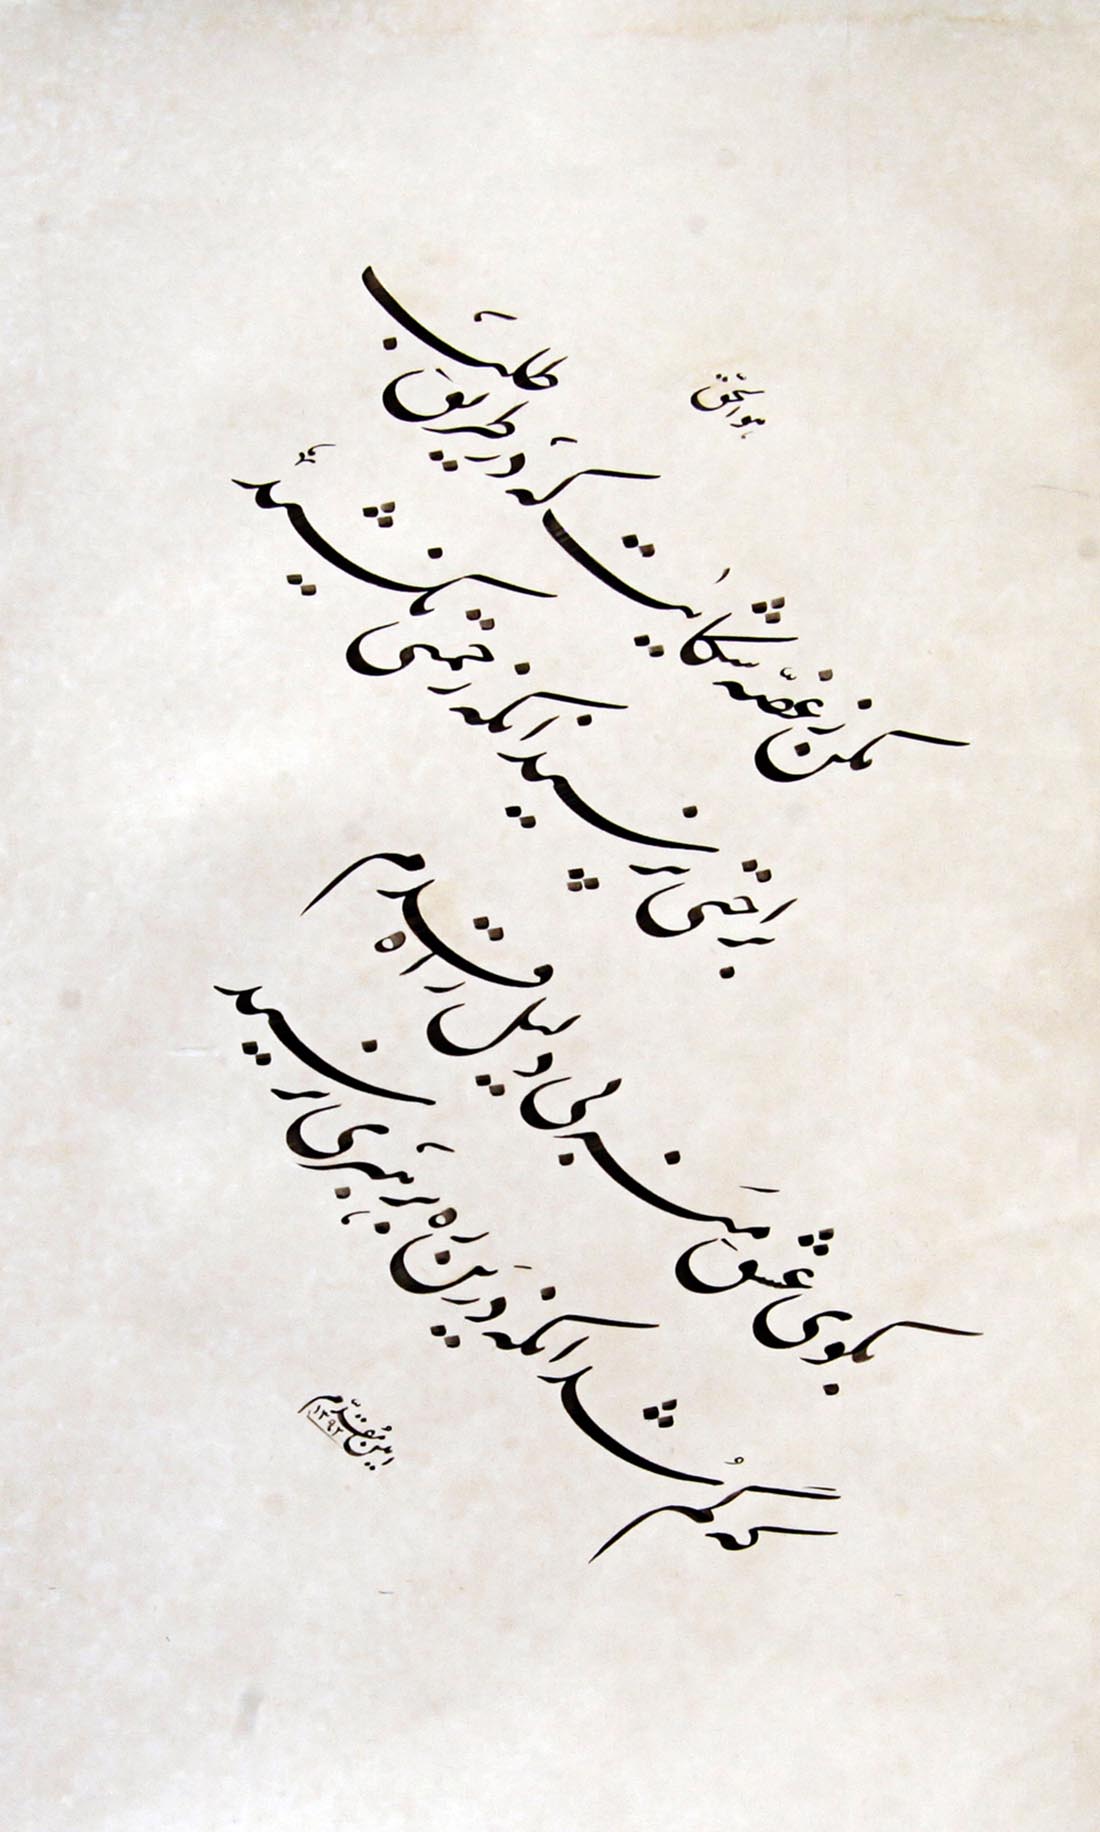 هوالحق
مکن ز غصّه شکایت که در طریق طلب
براحتی نرسید آنکه زحمتی نکشید
بکوی عشق منه بی دلیل راه قدم
که گم شد آنکه درین ره برهبری نرسید
امین مقدّم
۱۳۹۲